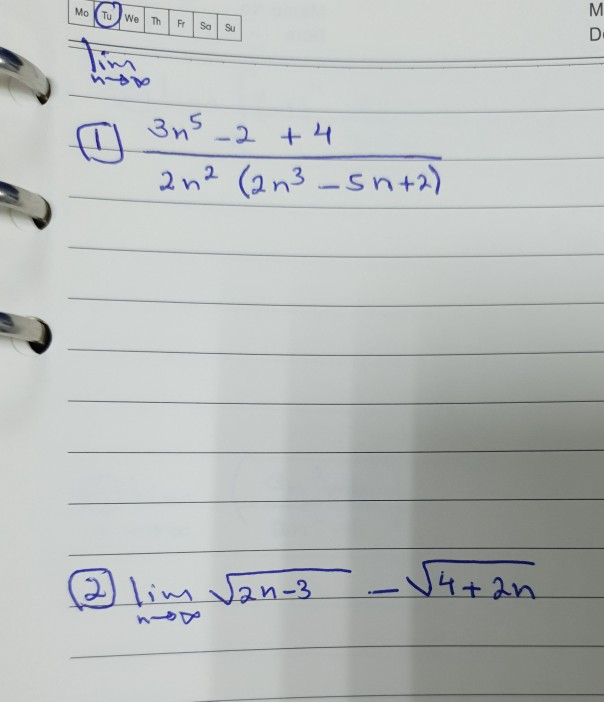 Mo Tu We Th Fr Sa Su
M
D
lim
n→∞
① 3n⁵ - 2 + 4
2n² (2n³ - 5n+2)
② lim √2n-3 - √4+2n
n→∞